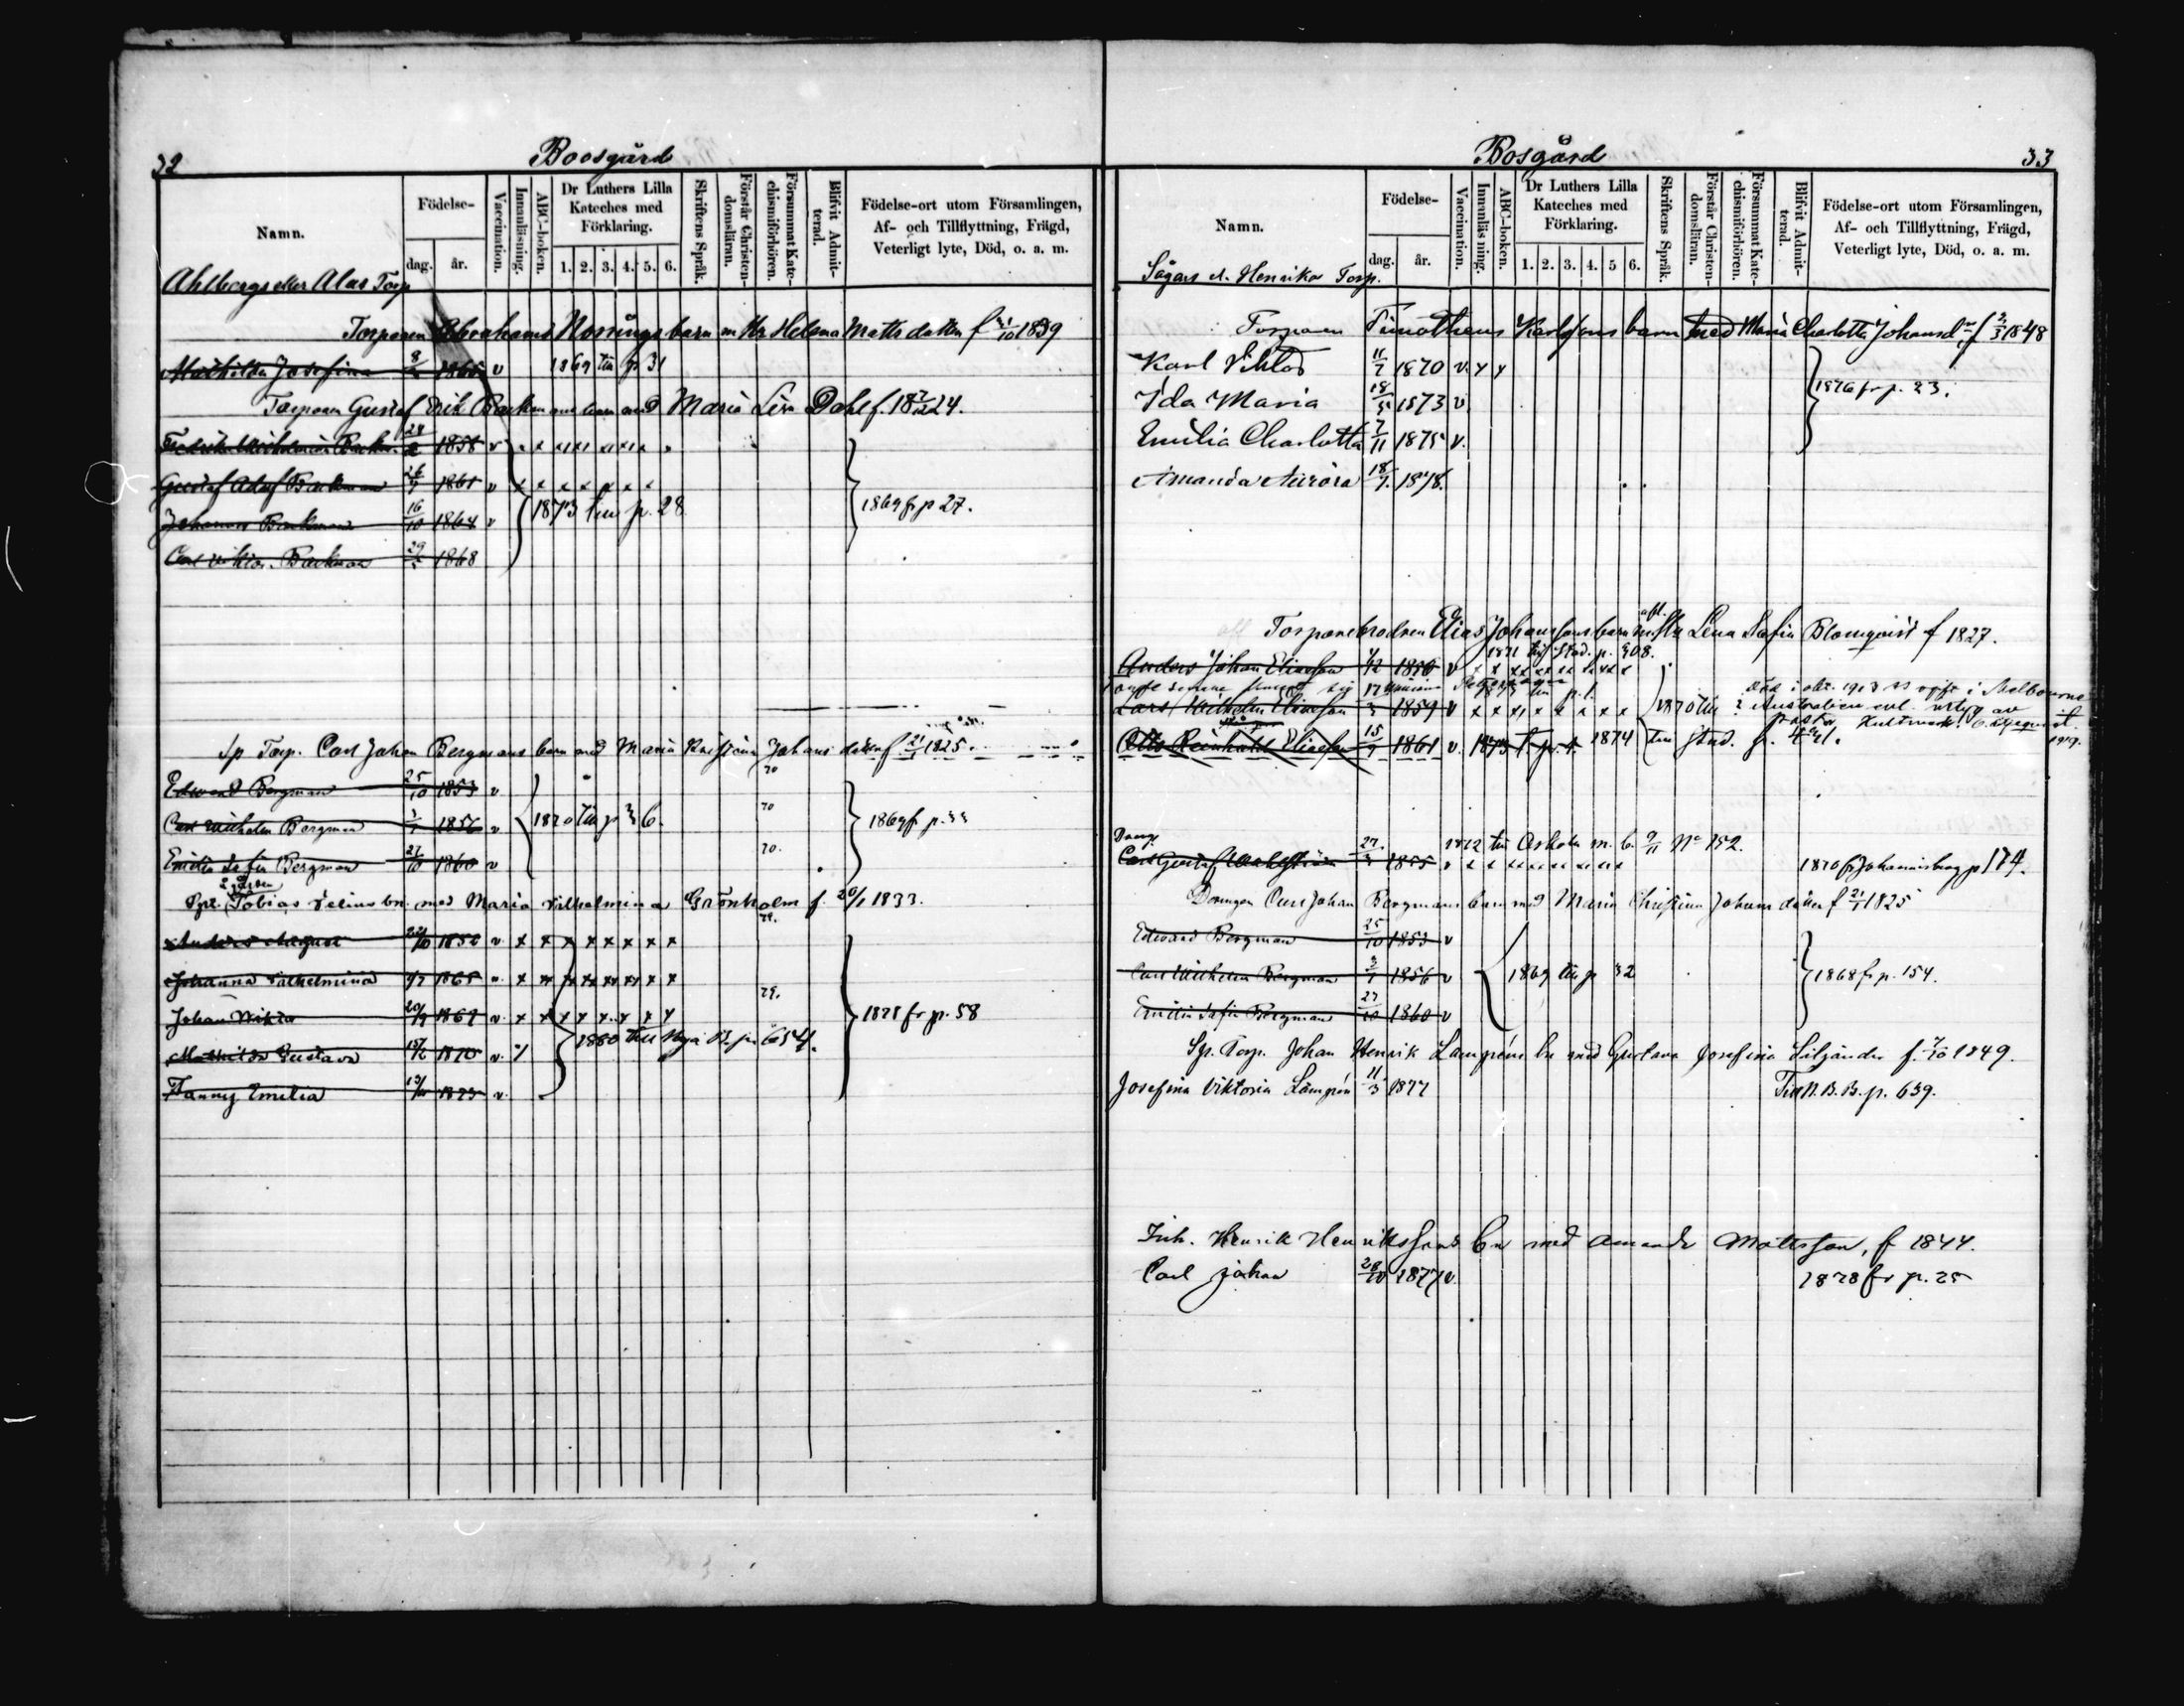 32
Boosgård
Namn.
Födelse-
dag. år.
Vaccination.
Innanläsning.
ABC-boken.
Dr Luthers Lilla
Kateches med
Förklaring.
1. 2. 3. 4. 5. 6.
Skriftens Språk.
Förstår Christen-
domsläran.
Försummat Kate-
chismiförhören.
Blifvit Admit-
terad.
Födelse-ort utom Församlingen,
Af- och Tillflyttning, Frägd,
Veterligt lyte, Död, o. a. m.
Ahlbergs eller Alas Torp
Torparen Abrahams barn m Hr Helena Matts dotter f 1839
Mathilda Josefina 8 1865 v 1869 till p 31
Torparen Gustaf Erik Backmans barn med Maria Lisa Dahl f. 1824.
Fredrika Wilhelmina Backm. 1858 v x
Gustaf Adolf Backman 26/7 1861 v x x x x x x x
Johannes Backman 16/10 1864 v 1873 till p. 28 1869 fr p 27.
Carl Viktor Backman 29 1868
Sp Torp. Carl Johan Bergmans barn med Maria Kristina Johans dotter f 21/1 1825.
70
Edward Bergman 25/10 1853 v
70
Carl Wilhelm Bergman 1856 v 1870 till p 36. 1869 fr p. 33
70.
Emilia Sofia Bergman 27/10 1860 v
Spl. Tobias Selins bn med Maria Vilhelmina Grönholm f. 20/1 1833.
79.
Anders August v. x x x x x x x x
Johanna Vilhelmina 1865 v. x x x x x x x x
79.
Johan Viktor 20/9 1867 v. x x x x x x x 1878 fr p. 58
Mathilda Gustava 1870 v. 1880 till Nya B. p. 654.
Fanny Emilia 1873 v.
Bosgård
33
Namn.
Födelse-
dag. år.
Vaccination.
Innanläsning.
ABC-boken.
Dr Luthers Lilla
Kateches med
Förklaring.
1. 2. 3. 4. 5 6.
Skriftens Språk.
Förstår Christen-
domsläran.
Försummat Kate-
chismiförhören.
Blifvit Admit-
terad.
Födelse-ort utom Församlingen,
Af- och Tillflyttning, Frägd,
Veterligt lyte, Död, o. a. m.
Sågars el. Henriks Torp.
Torparen Timotheus Karlssons barn med Maria Charlotta Johansd. f 3/3 1848
Karl Viktor 11/7 1870 v. x x
1876 fr p. 23.
Ida Maria 18/5 1873 v.
Emilia Charlotta 7/11 1875 v.
Amanda Aurora 18/7. 1878.
Torparebrodren Elias Johanssons barn m afl. Hu Lena Sofia Blomqvist f 1827.
1871 till Stad. p. 308.
Anders Johan Eliasson 1/12 1856 v x x x x x x x x
Död i okt. 1913 ss ogift i Melbourne
Lars Wilhelm Eliasson 1859 v x x x x x x x x 1870 till Australien enl. intyg av
pastor
Otto Reinhold Eliasson 15 1861 v. 1873 t. p. 1. 1874 till stad. p. 1919.
Dreng. 1872 till Askola m. b. 9/11 No 152.
Carl Gustaf 27. 1855 v x x x x x x x x 1870 fr Johannisberg p 174.
Drengen Carl Johan Bergmans barn med Maria Christina Johans dotter f 21/1 1825
Edward Bergman 25/10 1853 v
Carl Wilhelm Bergman 1856 v 1869 till p 32 1868 fr p. 154.
Emilia Sofia Bergman 27/10 1860 v
Sp. Torp. Johan Henrik Lampéns bn med Gustava Josefina Liljander f. 7/10 1849.
Josefina Viktoria Lampén 11/3 1877 Till N. B. B. p. 639.
Inh. Henrik Henrikssons bn med Amanda Mattsson, f 1844.
Carl Johan 28/10 1877 v. 1878 fr p. 25